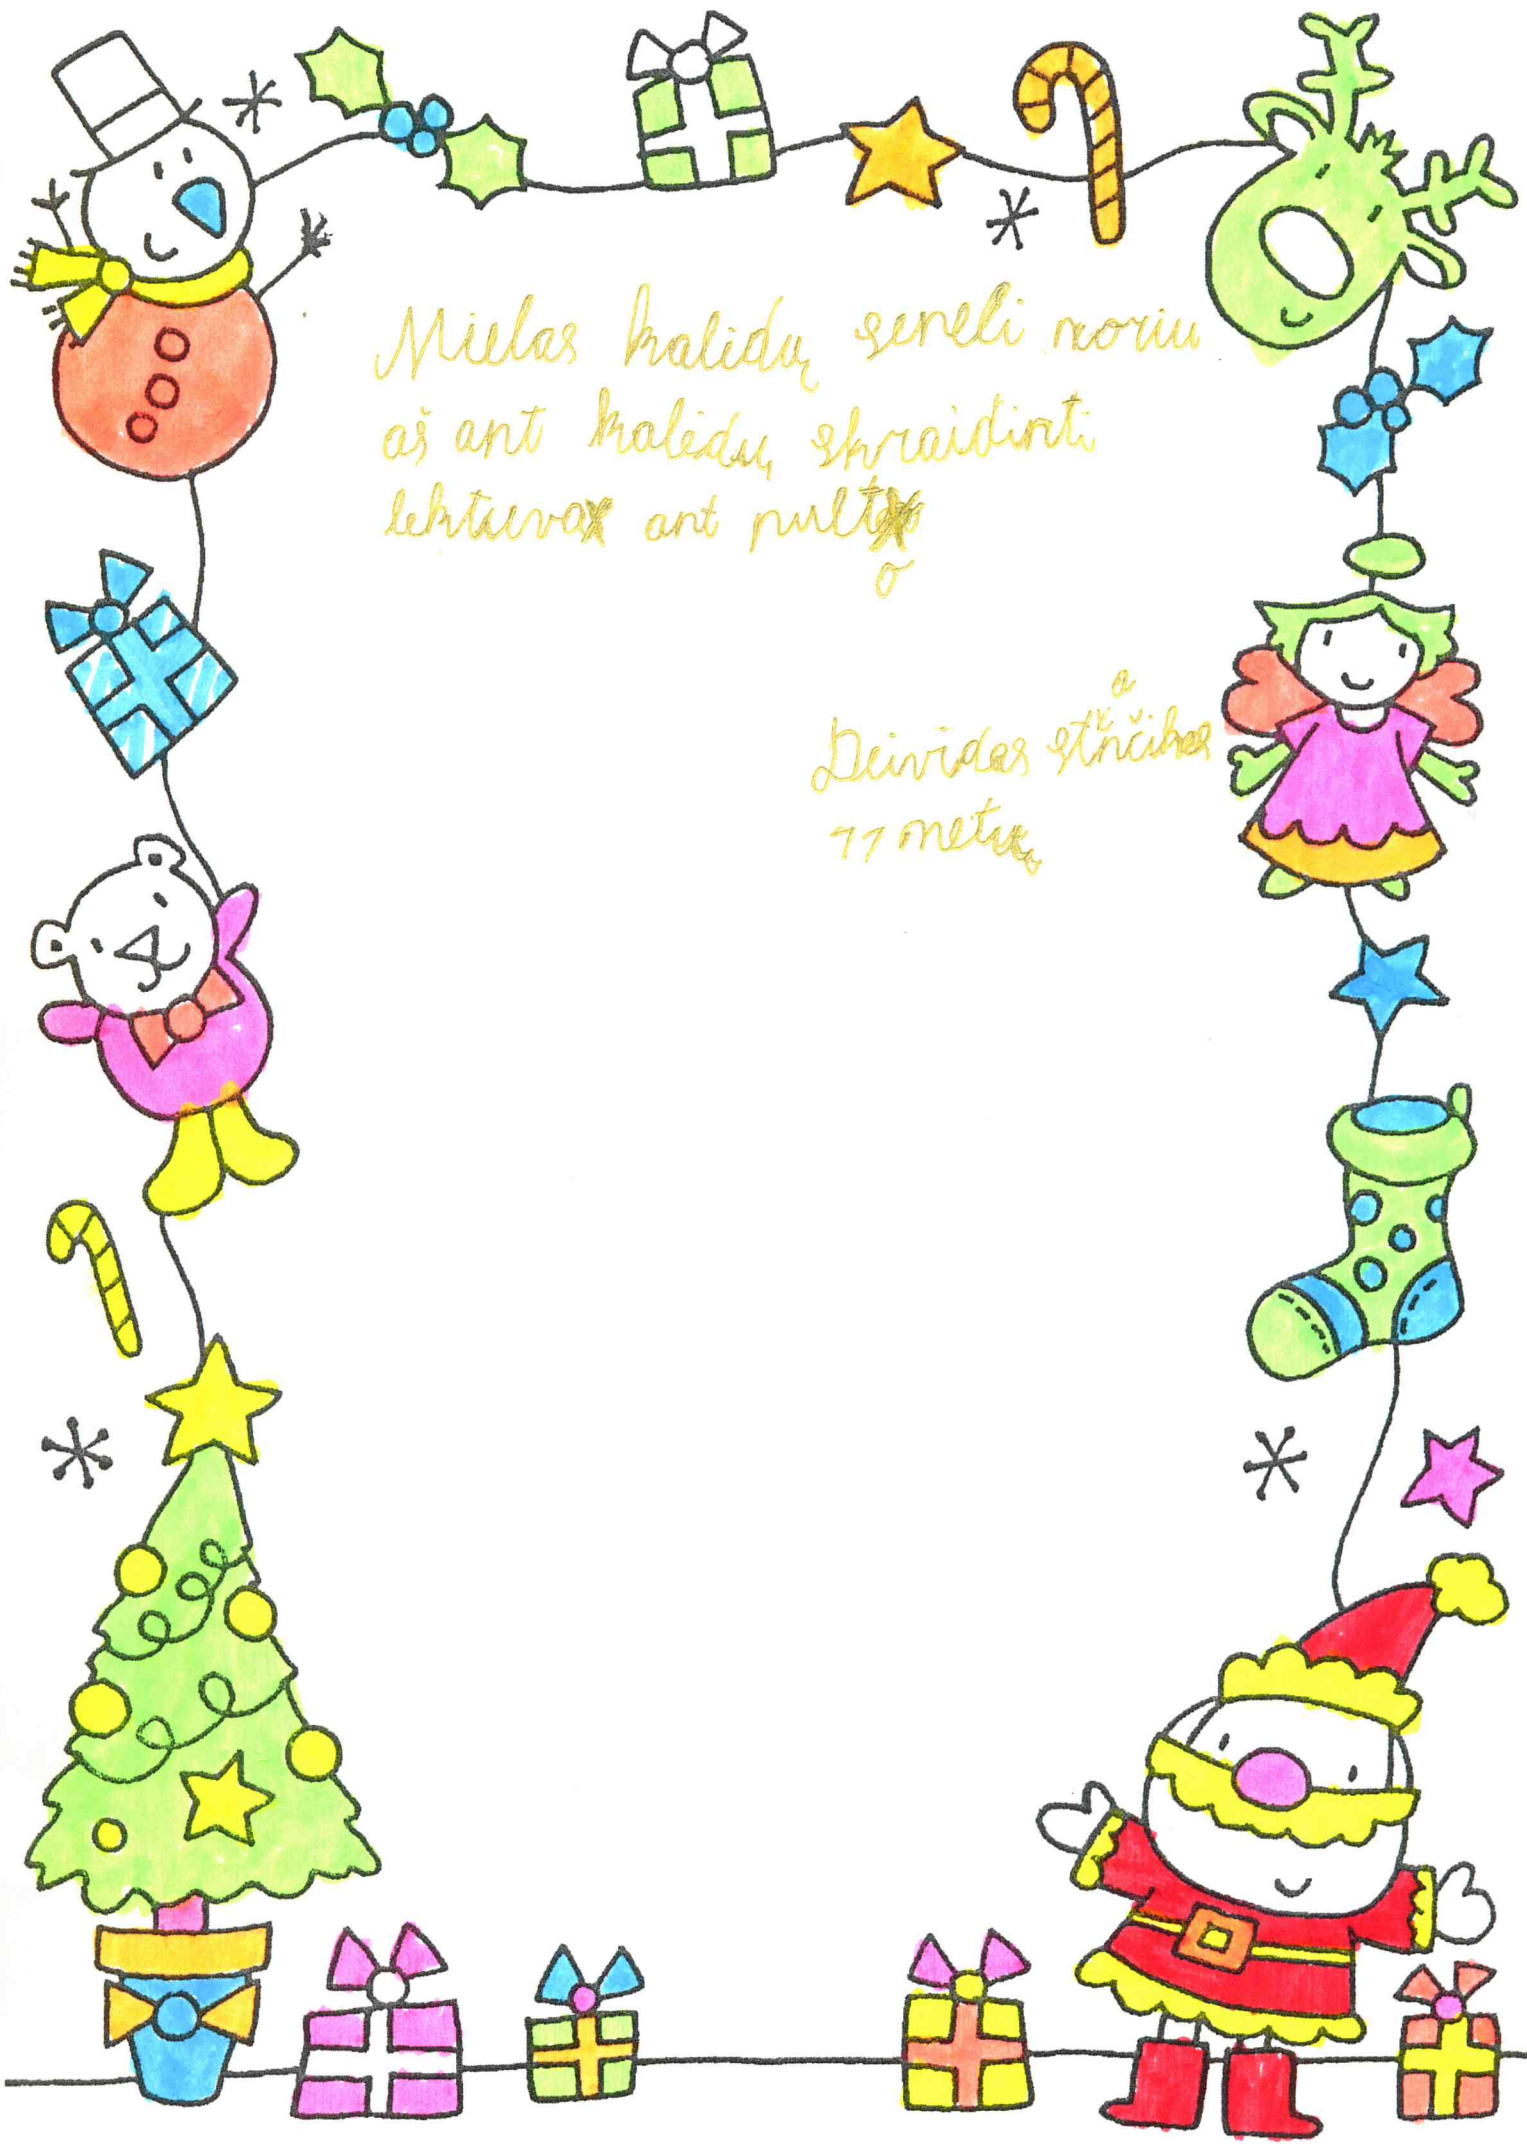 Mielas kalidų seneli noriu
aš ant kalėdų skraidinti
lektuva ant pulto
Deividas stančikas
11 metų